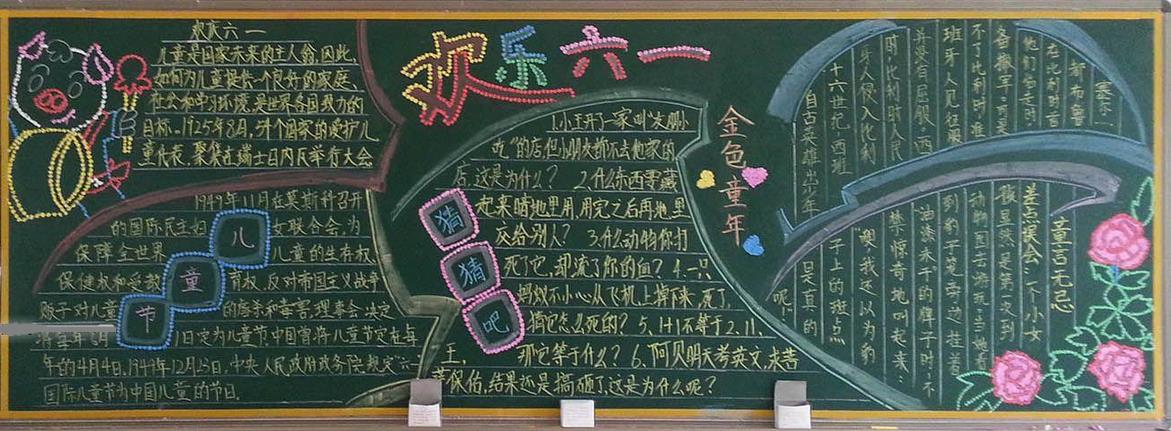 欢庆六一
儿童是国家未来的主人翁,因此,
如何为儿童提供一个良好的家庭、
社会和学习环境,是世界各国致力的
目标。1925年8月,54个国家的爱护儿
童代表,聚集在瑞士日内瓦举行大会
1949年11月在莫斯科召开
的国际民主妇女联合会,为
保障全世界儿童的生存权、
保健权和受教育权,反对帝国主义战争
贩子对儿童的虐杀和毒害,理事会决定
1日定为儿童节中国曾将儿童节定在每
年的4月4日,1949年12月23日,中央人民政府政务院规定“六一”
国际儿童节为中国儿童的节日.
儿
童
节
欢乐六一
1.小王开了一家叫“大胖小
吃”的店,但小朋友都不去他家的
店,这是为什么? 2.什么东西要藏
起来暗地里用,用完之后再暗地里
交给别人? 3.什么动物你打
死了它,却流了你的血? 4.一只
蚂蚁不小心从飞机上掉下来,死了,
请问它怎么死的? 5、1+1不等于2、11、
王,那它等于什么? 6、阿贝明天考英文,求菩
萨保佑,结果还是搞砸了,这是为什么呢?
猜
猜
吧
金色童年
自古英雄出少年
十六世纪,西班
牙人侵入比利
时,比利时人民
并没有屈服。西
班牙人见征服
不了比利时,准
备撤军。可是
他们约定时
在比利时首
都布鲁
塞尔
童言无忌
差点误会:一个小女
孩显然是第一次到
动物园去游玩,当她看
到豹子笼旁边挂着
“油漆未干”的牌子时,不
禁惊奇地叫起来:
“噢,我还以为豹
子身上的斑点
是真的
呢!”